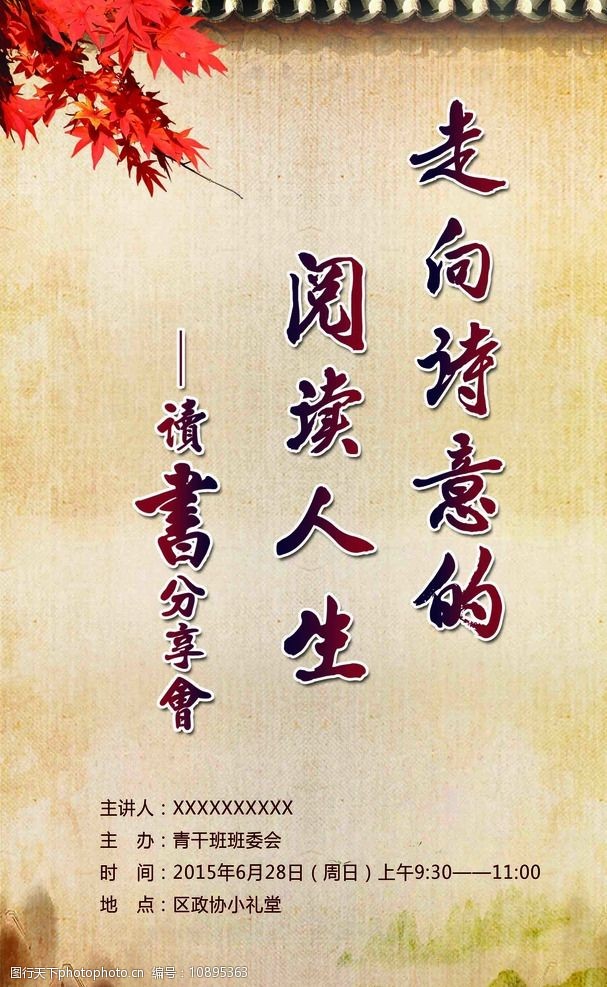 走向诗意的
阅读人生
——讀書分享會
主讲人：XXXXXXXXXX
主　办：青干班班委会
时　间：2015年6月28日（周日）上午9:30——11:00
地　点：区政协小礼堂
图行天下photophoto.cn 编号：10895363